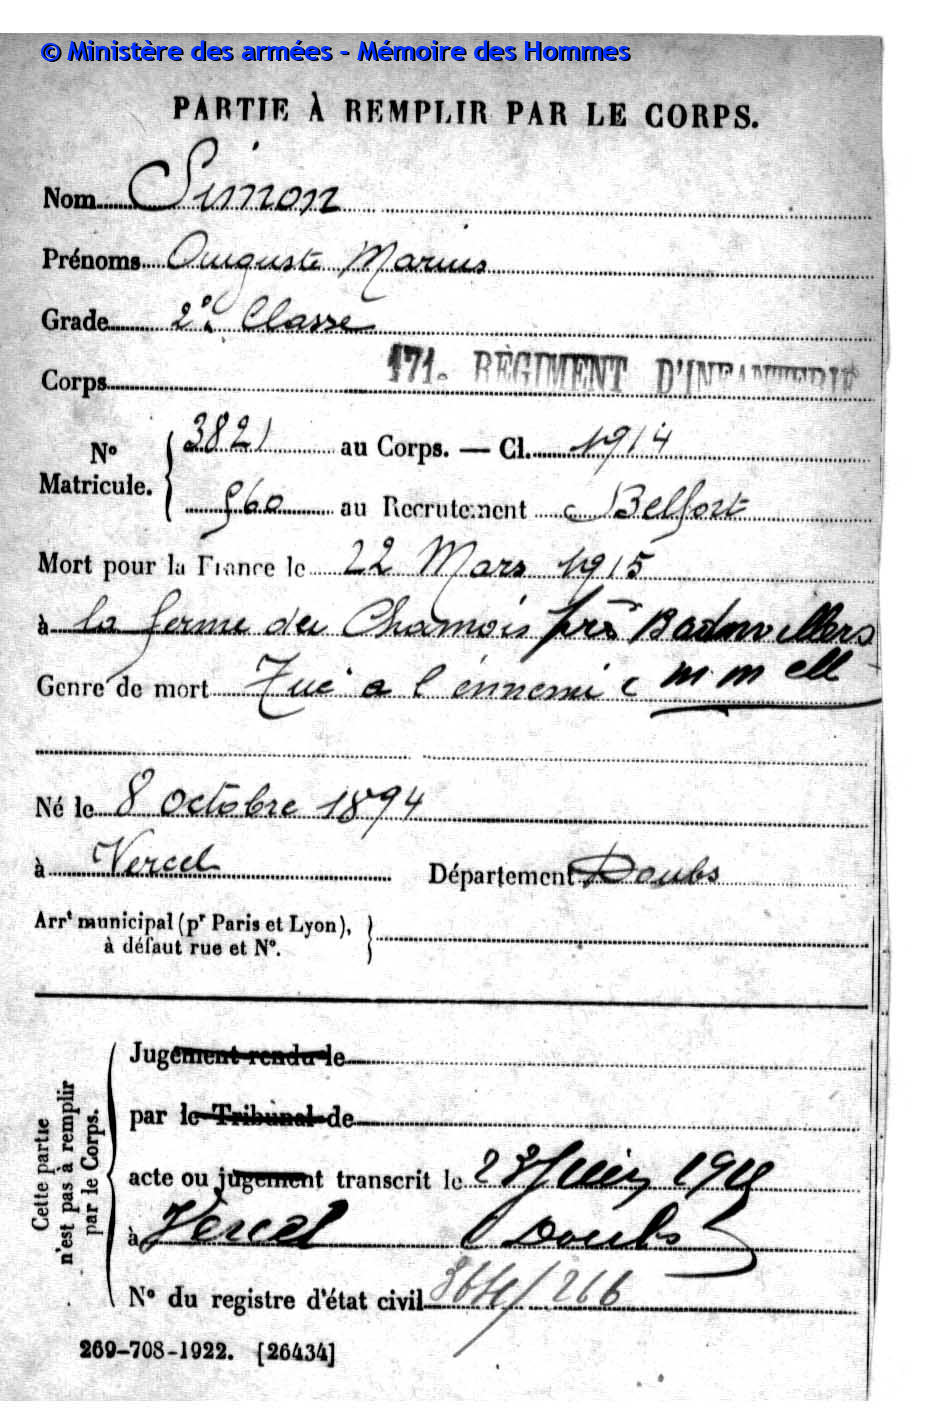 © Ministère des armées - Mémoire des Hommes
PARTIE À REMPLIR PAR LE CORPS.
Nom Simon
Prénoms Auguste Marius
Grade 2e Classe
Corps 171e RÉGIMENT D'INFANTERIE
No Matricule. { 3821 au Corps. — Cl. 1914
960 au Recrutement Belfort
Mort pour la France le 22 Mars 1915
à la ferme du Chamois près Badonvillers
Genre de mort Tué a l'énnemi M M &ll
Né le 8 Octobre 1894
à Vercel Département Doubs
Arrt municipal (pr Paris et Lyon),
à défaut rue et No. }
Cette partie
n'est pas à remplir
par le Corps.
Jugement rendu le
par le Tribunal de
acte ou jugement transcrit le 23 Juin 1918
à Vercel Doubs
No du registre d'état civil
269-708-1922. [26434]